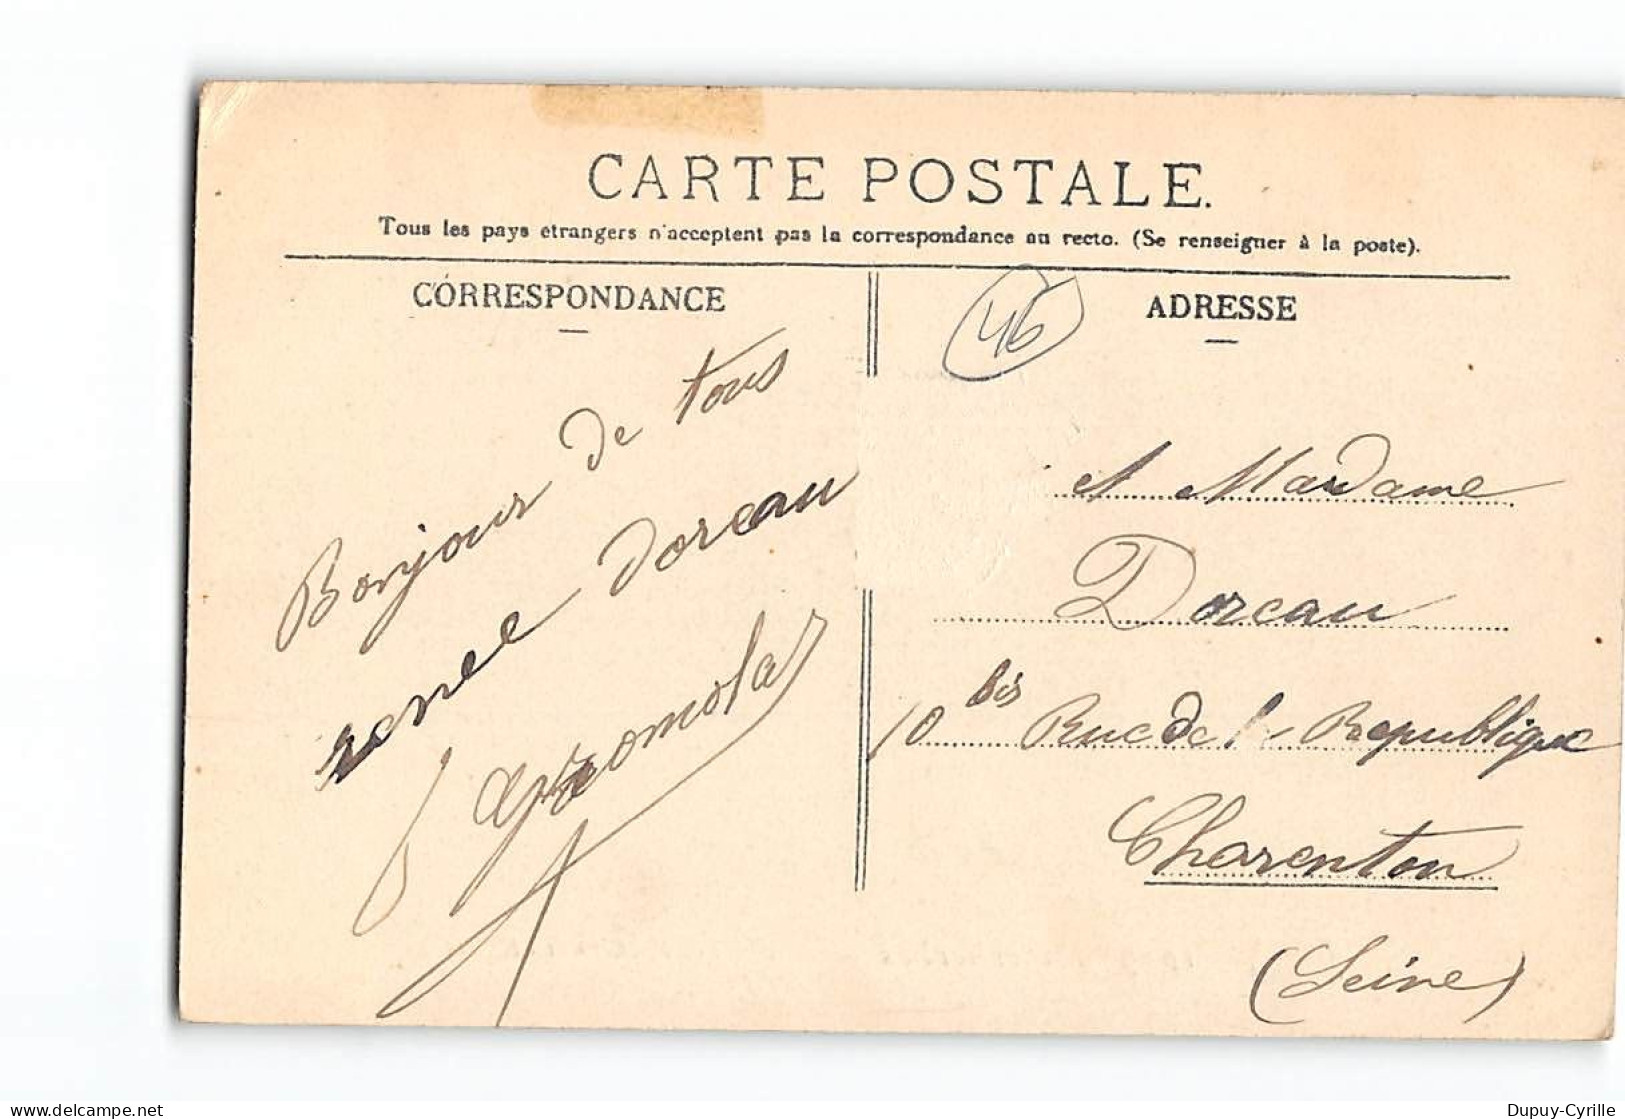 CARTE POSTALE.
Tous les pays etrangers n'acceptent pas la correspondance au recto. (Se renseigner à la poste).
CORRESPONDANCE
Bonjour de tous
renee Doreau
ADRESSE
46
A Madame
Doreau
10 bis Rue de la Republique
Charenton
(Seine)
Dupuy-Cyrille